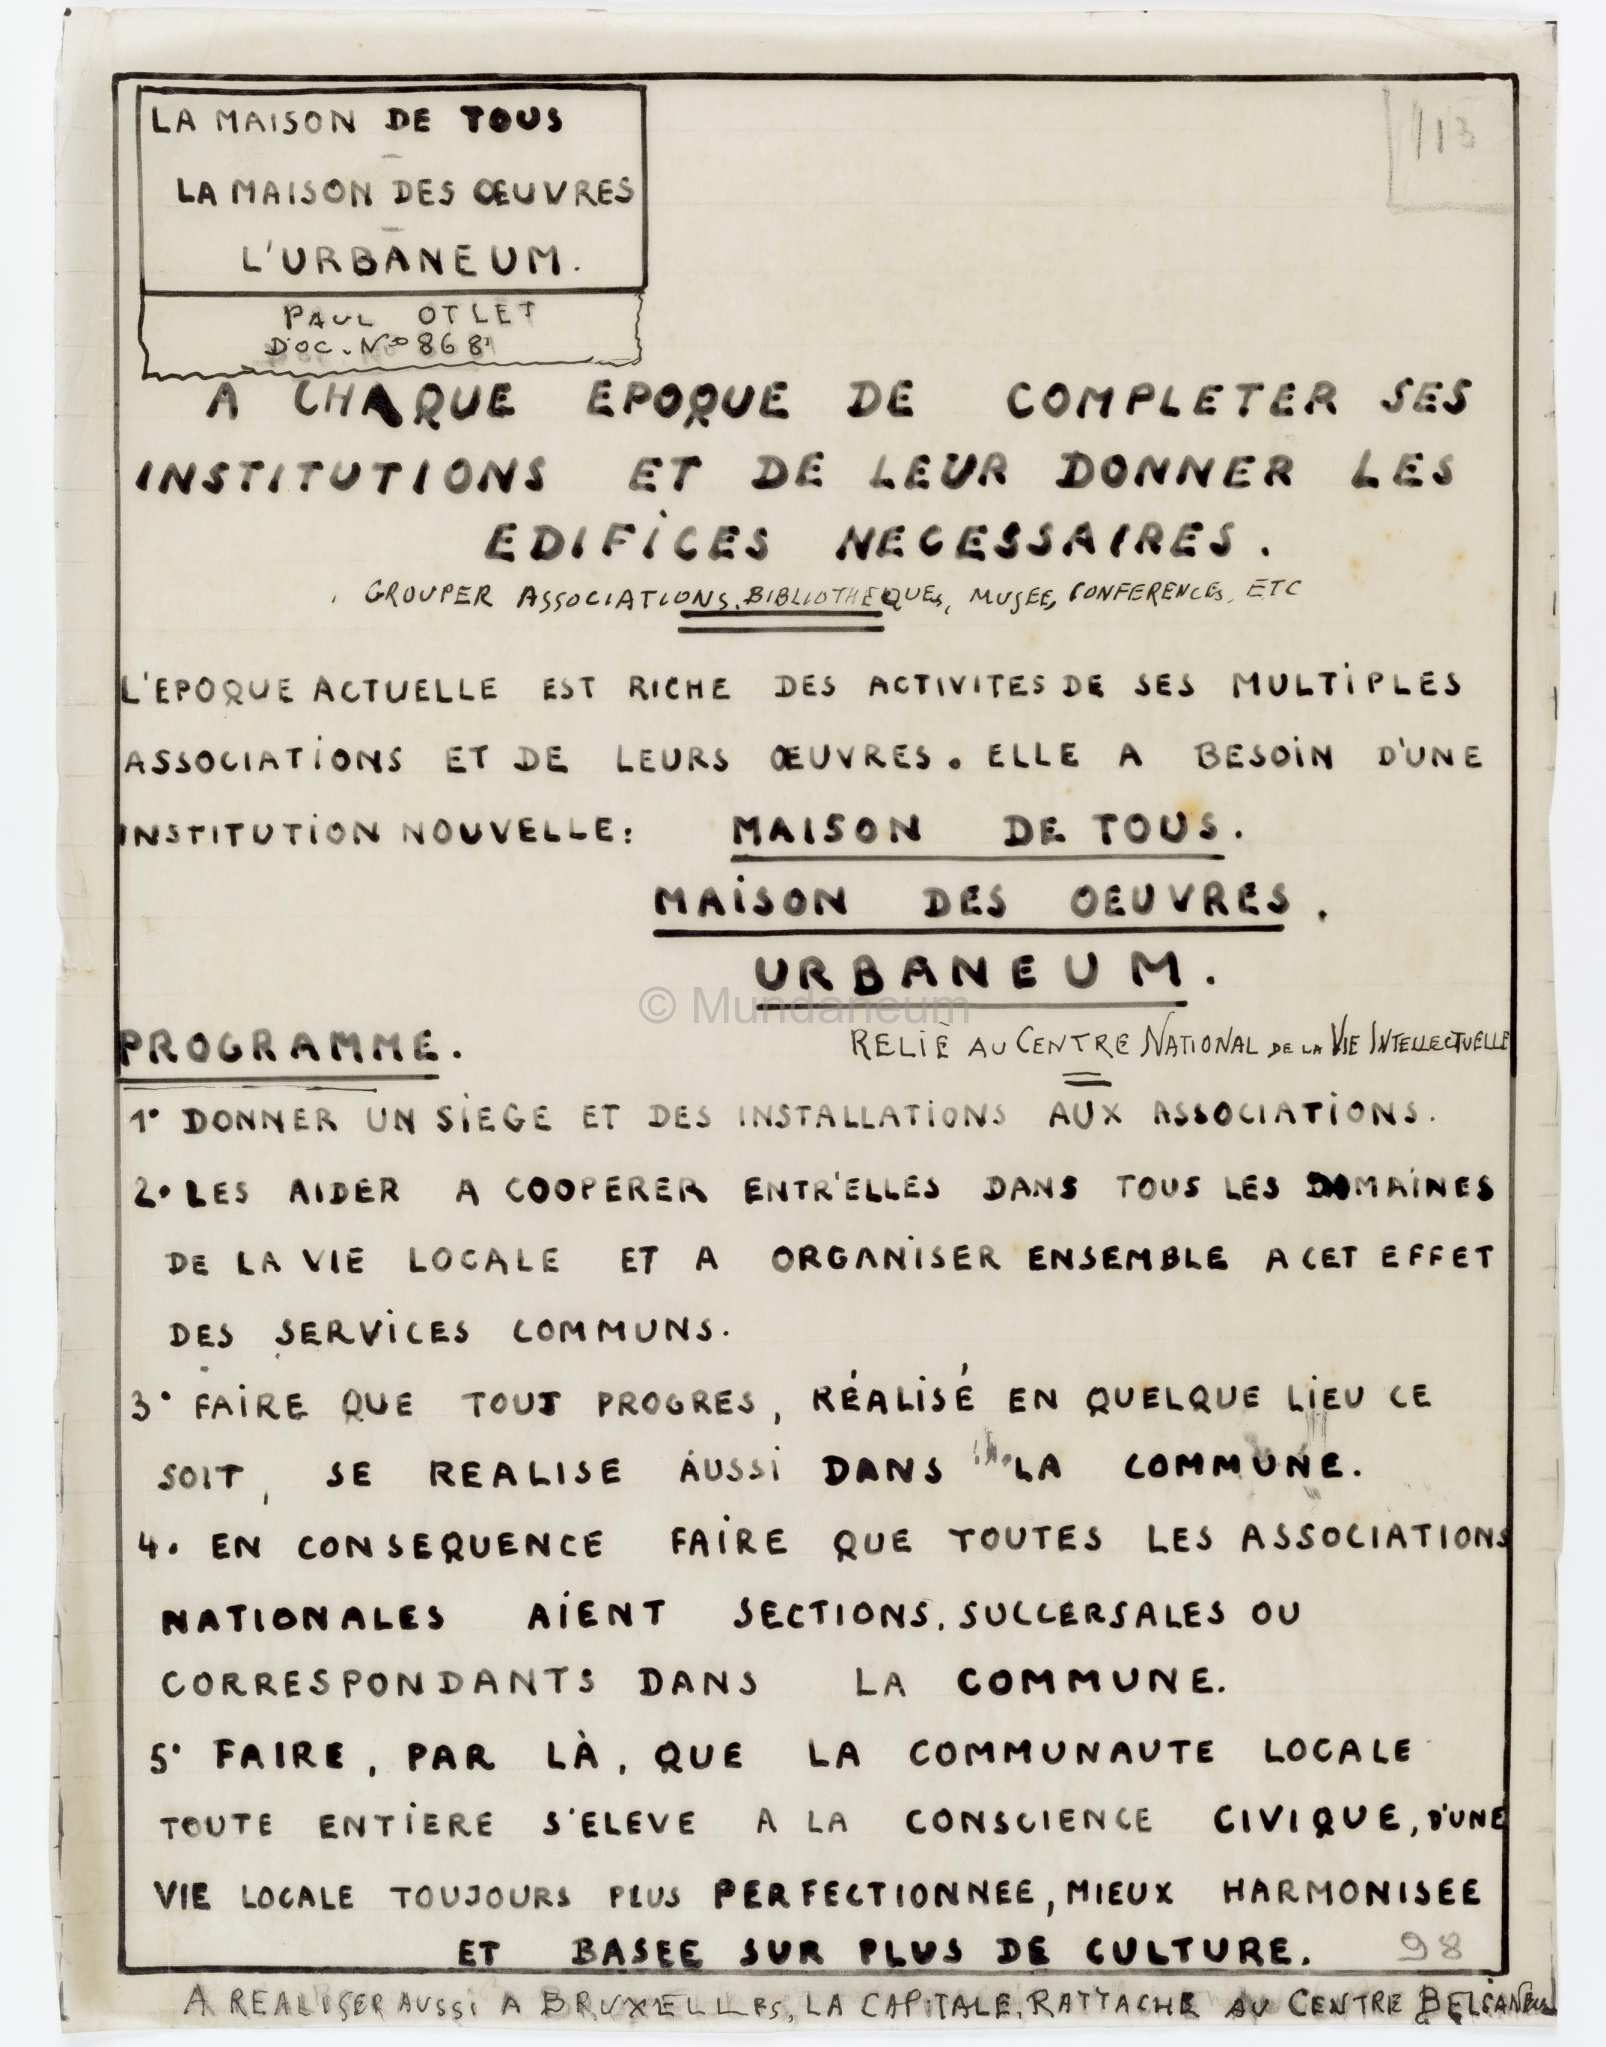 LA MAISON DE TOUS
LA MAISON DES ŒUVRES
L'URBANEUM.
113
PAUL OTLET
DOC. No 868
A CHAQUE EPOQUE DE COMPLETER SES
INSTITUTIONS ET DE LEUR DONNER LES
EDIFICES NECESSAIRES.
GROUPER ASSOCIATIONS, BIBLIOTHEQUES, MUSEE, CONFERENCES, ETC
L'EPOQUE ACTUELLE EST RICHE DES ACTIVITES DE SES MULTIPLES
ASSOCIATIONS ET DE LEURS ŒUVRES. ELLE A BESOIN D'UNE
INSTITUTION NOUVELLE: MAISON DE TOUS.
MAISON DES OEUVRES.
URBANEUM.
© Mundaneum
RELIÉ AU CENTRE NATIONAL DE LA VIE INTELLECTUELLE
PROGRAMME.
1° DONNER UN SIEGE ET DES INSTALLATIONS AUX ASSOCIATIONS.
2. LES AIDER A COOPERER ENTR'ELLES DANS TOUS LES DOMAINES
DE LA VIE LOCALE ET A ORGANISER ENSEMBLE A CET EFFET
DES SERVICES COMMUNS.
3° FAIRE QUE TOUT PROGRES, RÉALISÉ EN QUELQUE LIEU CE
SOIT, SE REALISE AUSSI DANS LA COMMUNE.
4. EN CONSEQUENCE FAIRE QUE TOUTES LES ASSOCIATIONS
NATIONALES AIENT SECTIONS, SUCCERSALES OU
CORRESPONDANTS DANS LA COMMUNE.
5° FAIRE, PAR LÀ, QUE LA COMMUNAUTE LOCALE
TOUTE ENTIERE S'ELEVE A LA CONSCIENCE CIVIQUE, D'UNE
VIE LOCALE TOUJOURS PLUS PERFECTIONNEE, MIEUX HARMONISEE
ET BASEE SUR PLUS DE CULTURE.
98
A REALISER AUSSI A BRUXELLES, LA CAPITALE, RATTACHE AU CENTRE